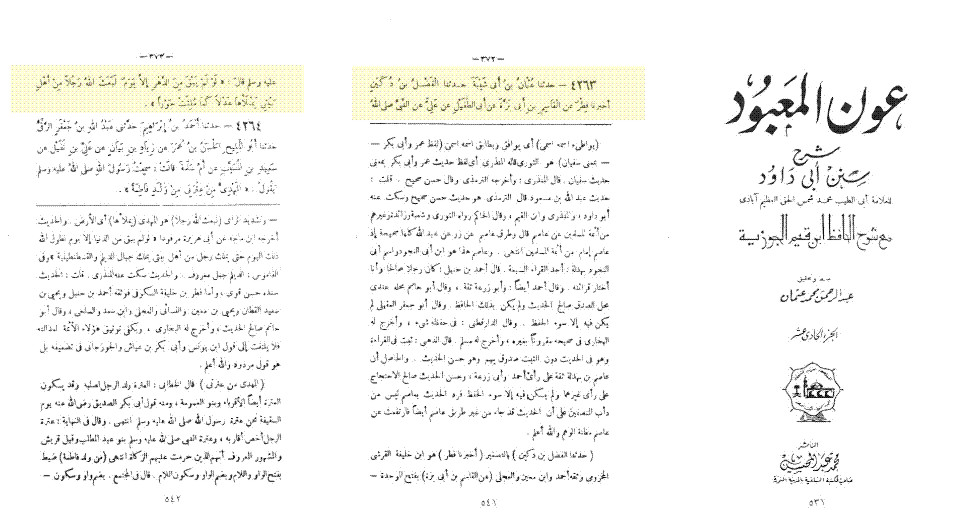 عون المعبود
شرح
سنن أبي داود
للعلامة أبي الطيب محمد شمس الحق العظيم آبادي
مع شرح الحافظ ابن قيم الجوزية
ضبط وتحقيق
عبد الرحمن محمد عثمان
الجزء الحادي عشر
الناشر
محمد عبد المحسن
صاحب المكتبة السلفية بالمدينة المنورة
٥٣١
— ٣٧٢ —
٤٢٦٣ — حدثنا عثمان بن أبى شيبة حدثنا الفضل بن دكين
أخبرنا فطر عن القاسم بن أبى بزة عن أبى الطفيل عن على عن النبى صلى الله
(يواطىء اسمه اسمى) أى يوافق ويطابق اسمه اسمى (لفظ عمر وأبى بكر
— بمعنى سفيان) هو الثورى قاله المنذرى أى لفظ حديث عمر وأبى بكر بمعنى
حديث سفيان. قال المنذرى: وأخرجه الترمذى وقال حسن صحيح. قلت:
حديث عبد الله بن مسعود قال الترمذى هو حديث حسن صحيح وسكت عنه
أبو داود، والمنذرى وابن القيم، وقال الحاكم رواه الثورى وشعبة وزائدة وغيرهم
من أئمة المسلمين عن عاصم قال وطرق عاصم عن زر عن عبد الله كلها صحيحة إذ
عاصم إمام من أئمة المسلمين انتهى. وعاصم هذا هو ابن أبى النجود واسم أبى
النجود بهدلة: أحد القراء السبعة. قال أحمد بن حنبل: كان رجلا صالحا وأنا
أختار قراءته. وقال أحمد أيضاً: وأبو زرعة ثقة، وقال أبو حاتم محله عندى
محل الصدق صالح الحديث ولم يكن بذلك الحافظ. وقال أبو جعفر العقيلى لم
يكن فيه إلا سوء الحفظ. وقال الدارقطنى: فى حفظه شىء، وأخرج له
البخارى فى صحيحه مقروناً بغيره، وأخرج له مسلم. قال الذهبى: ثبت فى القراءة
وهو فى الحديث دون الثبت صدوق يهم وهو حسن الحديث. والحاصل أن
عاصم بن بهدلة ثقة على رأى أحمد وأبى زرعة، وحسن الحديث صالح الاحتجاج
على رأى غيرهما ولم يكن فيه إلا سوء الحفظ فرد الحديث بعاصم ليس من
دأب المنصفين على أن الحديث قد جاء من غير طريق عاصم أيضاً فارتفعت عن
عاصم مظنة الوهم والله أعلم.
(حدثنا الفضل بن دكين) بالتصغير (أخبرنا فطر) هو ابن خليفة القرشى
المخزومى وثقه أحمد وابن معين والعجلى (عن القاسم بن أبى بزة) بفتح الوحدة —
٥٤١
— ٣٧٣ —
عليه وسلم قال: « لو لم يبق من الدهر إلا يوم لبعث الله رجلا من أهل
بيتى يملأها عدلا كما ملئت جوراً ».
٤٢٦٤ — حدثنا أحمد بن إبراهيم حدثنى عبد الله بن جعفر الرقى
حدثنا أبو المليح الحسن بن عمر عن زياد بن بيان عن على بن نفيل عن
سعيد بن المسيب عن أم سلمة قالت: سمعت رسول الله صلى الله عليه وسلم
يقول: « المهدى من عترتى من ولد فاطمة ».
— وتشديد الزاى (لبعث الله رجلا) هو المهدى (يملأها) أى الأرض. والحديث
أخرجه ابن ماجه عن أبى هريرة مرفوعا « لو لم يبق من الدنيا إلا يوم لطول الله
ذلك اليوم حتى يملك رجل من أهل بيتى يملك جبال الديلم والقسطنطينية » وفى
القاموس: الديلم جبل معروف. والحديث سكت عنه المنذرى. قلت: الحديث
سنده حسن قوى، وأما فطر بن خليفة الكوفى فوثقه أحمد بن حنبل ويحيى بن
سعيد القطان ويحيى بن معين والنسائى والعجلى وابن سعد والساجى، وقال أبو
حاتم صالح الحديث، وأخرج له البخارى، ويكفى توثيق هؤلاء الأئمة لعدالته
فلا يلتفت إلى قول ابن يونس وأبى بكر بن عياش والجوزجانى فى تضعيفه بل
هو قول مردود والله أعلم.
(المهدى من عترتى) قال الخطابى: العترة ولد الرجل لصلبه وقد يكون
العترة أيضاً الأقرباء وبنو العمومة، ومنه قول أبى بكر الصديق رضى الله عنه يوم
السقيفة نحن عترة رسول الله صلى الله عليه وسلم انتهى. وقال فى النهاية: عترة
الرجل أخص أقاربه، وعترة النبى صلى الله عليه وسلم بنو عبد المطلب وقيل قريش
والمشهور المعروف أنهم الذين حرمت عليهم الزكاة انتهى (من ولد فاطمة) ضبط
بفتح الواو واللام وبضم الواو وسكون اللام. قال فى المجمع. بضم واو وسكون —
٥٤٢